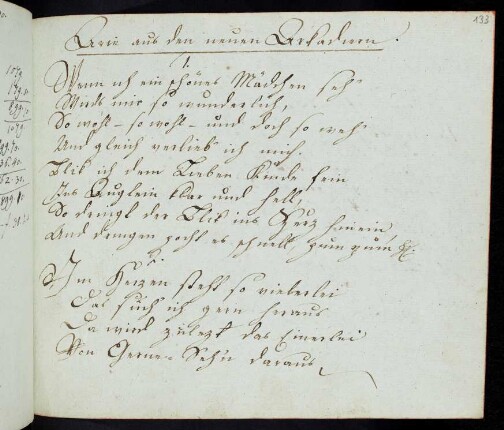 133
Arie aus den neuen Arkadiern.
1.
Wenn ich ein schönes Mädchen seh
Wirds mir so wunderlich,
So wohl – so wohl – und doch so weh
Und gleich verlieb ich mich.
Blik ich dem Lieben Kinde frein
Ins Auglein klar und hell,
So dringt der Blik ins Herz hinein,
Und drinnen pocht es schnell, pum pum
2.
Im Herzen steht so vielerlei
Das such ich gern heraus
Da wird zulezt das Einerlei
Von Gerne-Sehn daraus,